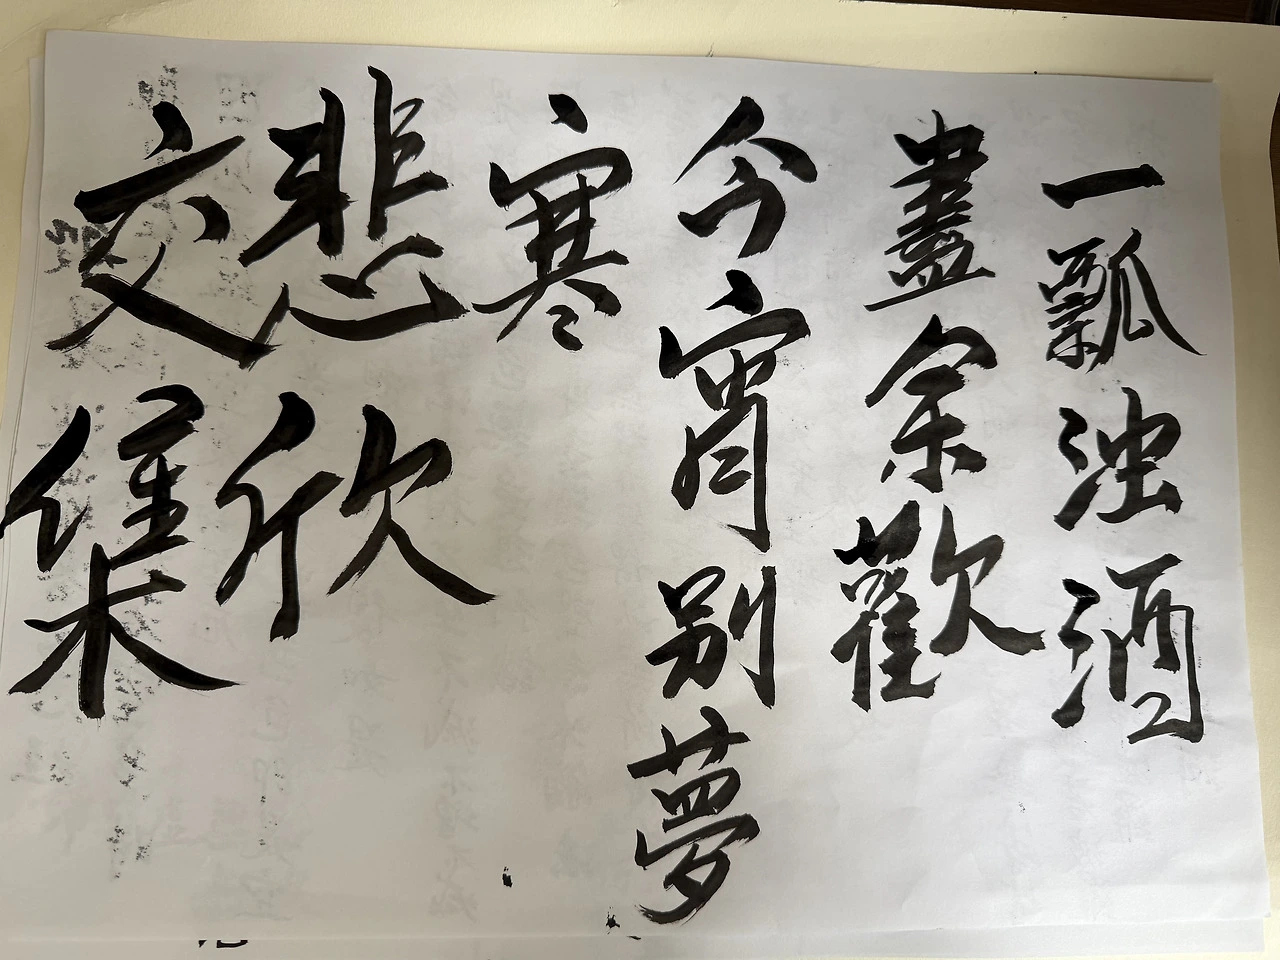 一瓢浊酒
盡余歡
今宵别夢
寒
悲欣
交集